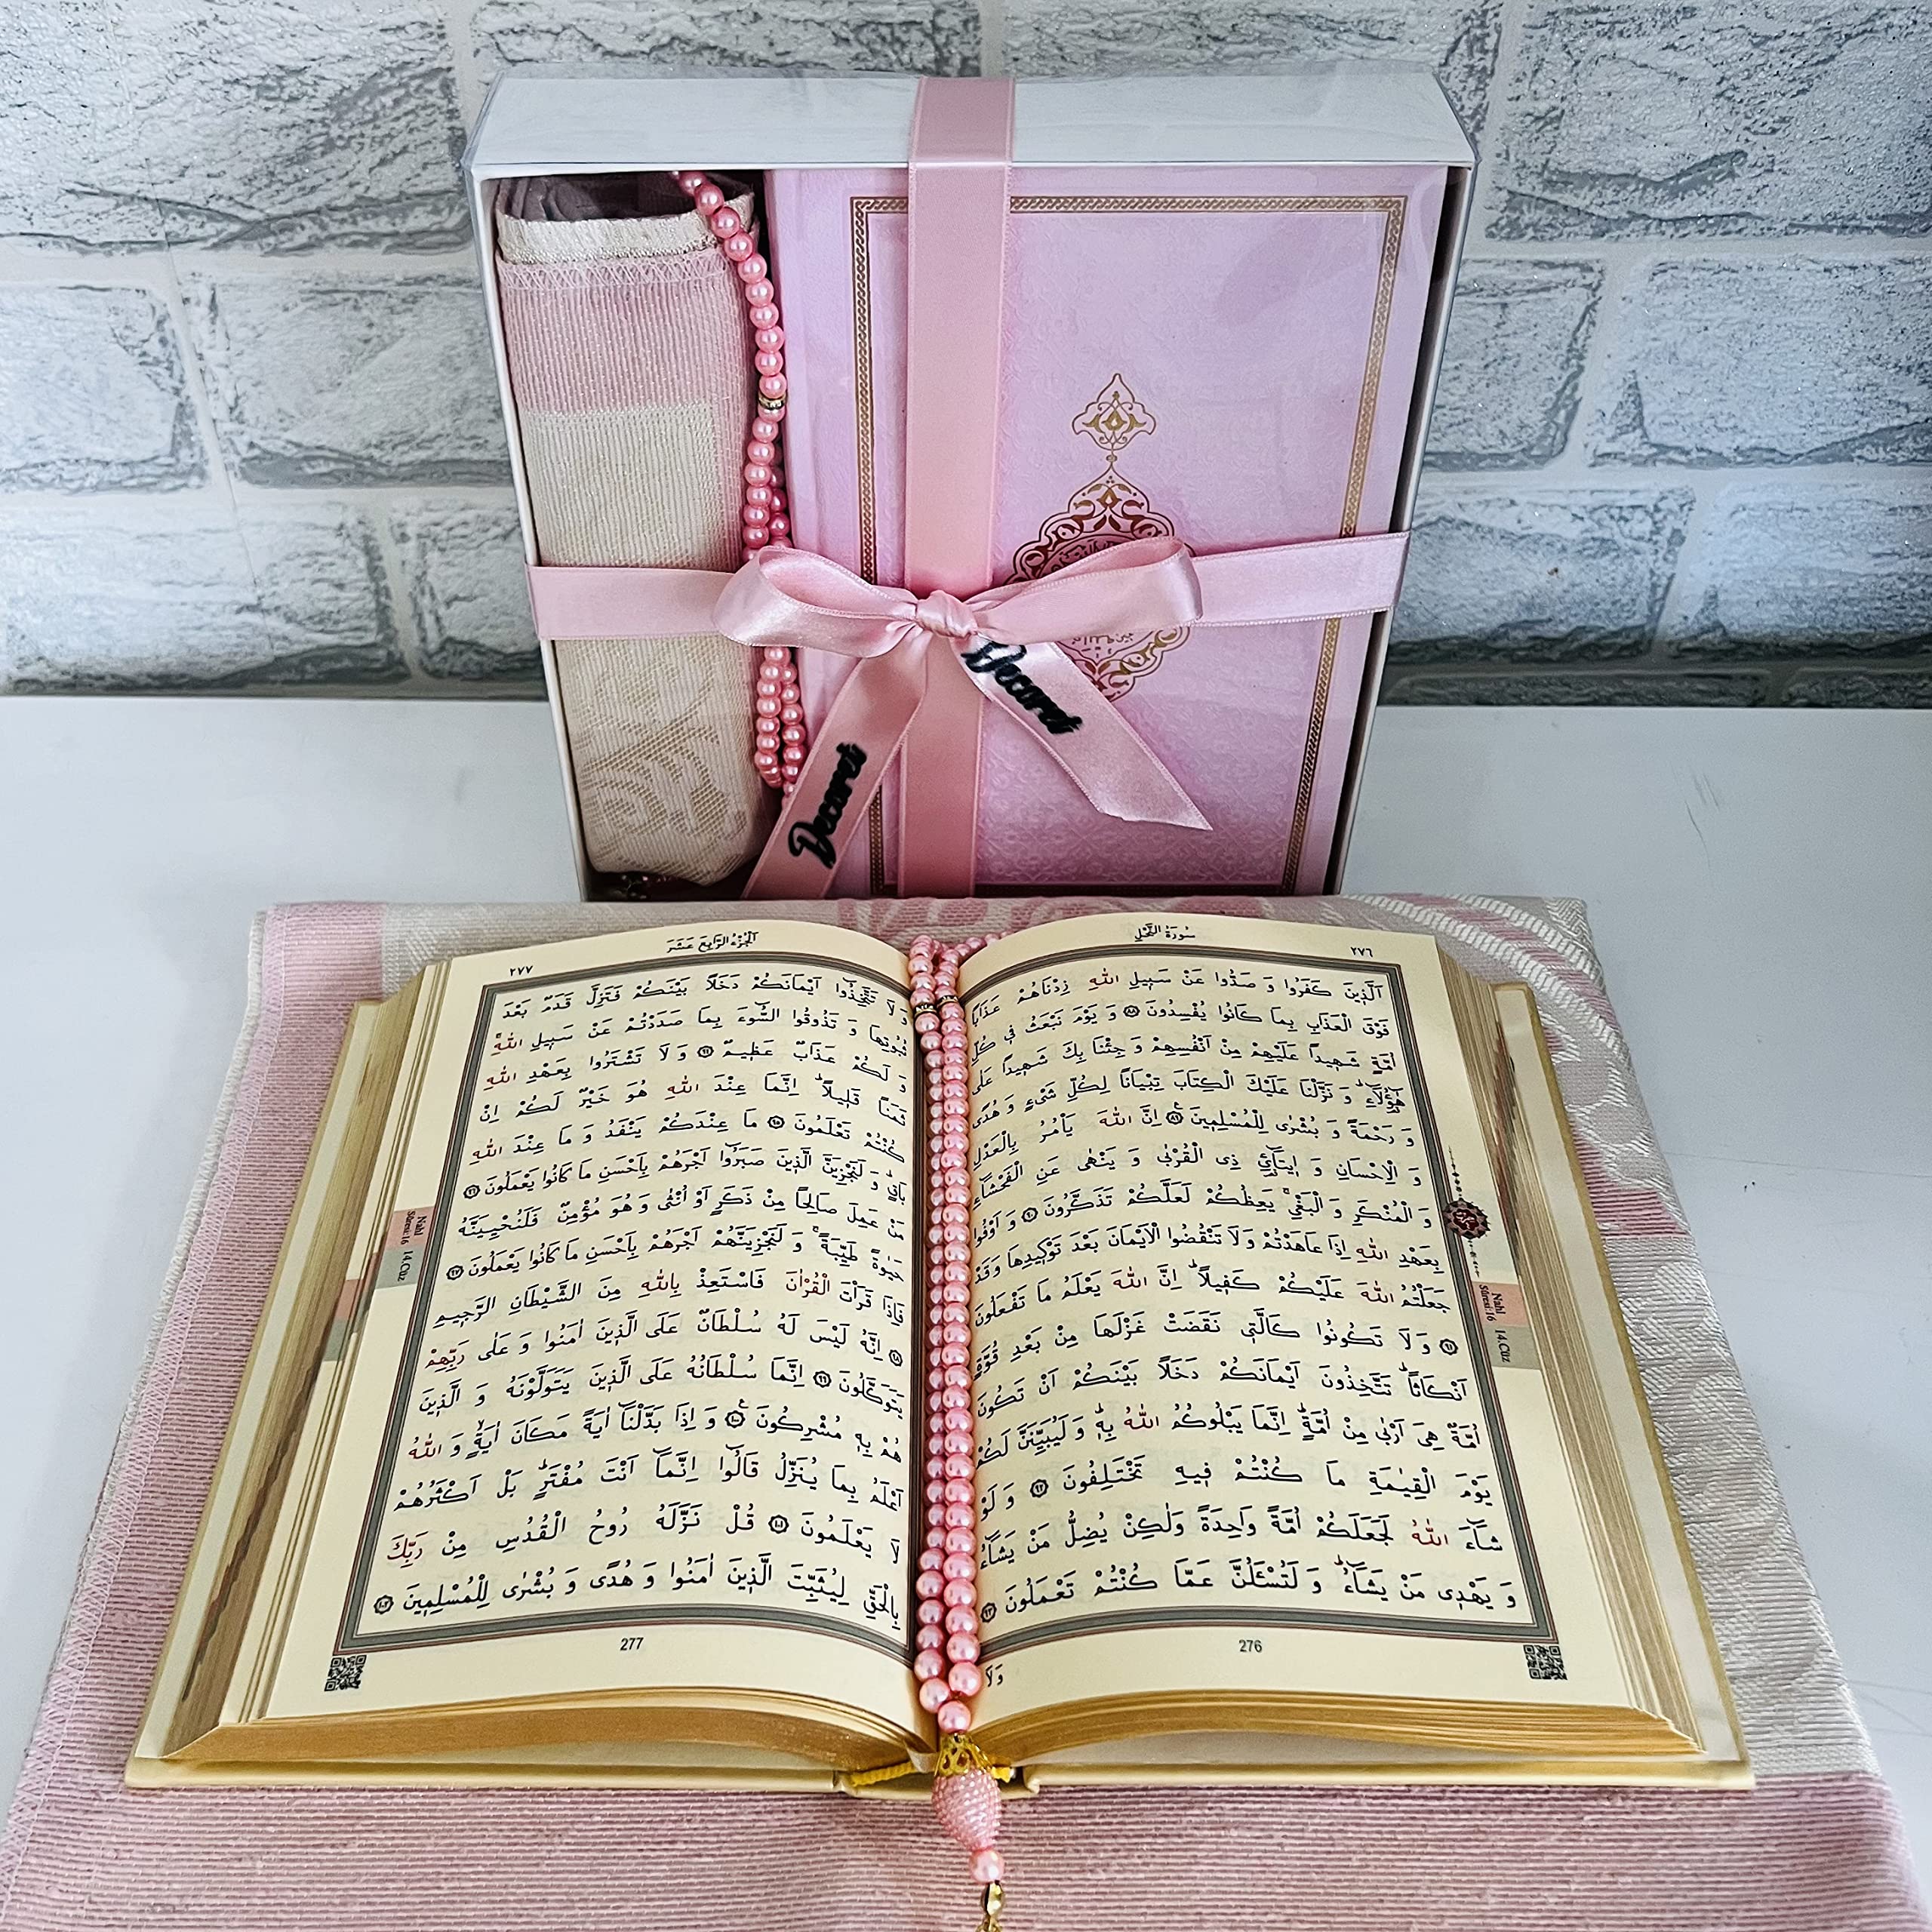 Decoret
Decoret
سُورَةُ النَّحْلِ
٢٧٦
اَلَّذٖينَ كَفَرُوا وَ صَدُّوا عَنْ سَبٖيلِ اللّٰهِ زِدْنَاهُمْ عَذَابًا
فَوْقَ الْعَذَابِ بِمَا كَانُوا يُفْسِدُونَ ٨٨ وَ يَوْمَ نَبْعَثُ فٖى كُلِّ
اُمَّةٍ شَهٖيداً عَلَيْهِمْ مِنْ اَنْفُسِهِمْ وَ جِئْنَا بِكَ شَهٖيداً عَلٰى
هٰٓؤُلَٓاءِ وَ نَزَّلْنَا عَلَيْكَ الْكِتَابَ تِبْيَاناً لِكُلِّ شَیْءٍ وَ هُدًى
وَ رَحْمَةً وَ بُشْرٰى لِلْمُسْلِمٖينَ ٨٩ اِنَّ اللّٰهَ يَاْمُرُ بِالْعَدْلِ
وَ الْاِحْسَانِ وَ اٖيتَٓائِ ذِى الْقُرْبٰى وَ يَنْهٰى عَنِ الْفَحْشَٓاءِ
وَ الْمُنْكَرِ وَ الْبَغْىِ يَعِظُكُمْ لَعَلَّكُمْ تَذَكَّرُونَ ٩٠ وَ اَوْفُوا
بِعَهْدِ اللّٰهِ اِذَا عَاهَدْتُمْ وَلَا تَنْقُضُوا الْاَيْمَانَ بَعْدَ تَوْكٖيدِهَا وَقَدْ
جَعَلْتُمُ اللّٰهَ عَلَيْكُمْ كَفٖيلاً اِنَّ اللّٰهَ يَعْلَمُ مَا تَفْعَلُونَ
٩١ وَ لَا تَكُونُوا كَالَّتٖى نَقَضَتْ غَزْلَهَا مِنْ بَعْدِ قُوَّةٍ
اَنْكَاثاً تَتَّخِذُونَ اَيْمَانَكُمْ دَخَلاً بَيْنَكُمْ اَنْ تَكُونَ
اُمَّةٌ هِىَ اَرْبٰى مِنْ اُمَّةٍ اِنَّمَا يَبْلُوكُمُ اللّٰهُ بِهٖ وَ لَيُبَيِّنَنَّ لَكُمْ
يَوْمَ الْقِيٰمَةِ مَا كُنْتُمْ فٖيهِ تَخْتَلِفُونَ ٩٢ وَ لَوْ
شَٓاءَ اللّٰهُ لَجَعَلَكُمْ اُمَّةً وَاحِدَةً وَلٰكِنْ يُضِلُّ مَنْ يَشَٓاءُ
وَ يَهْدٖى مَنْ يَشَٓاءُ وَ لَتُسْـَٔلُنَّ عَمَّا كُنْتُمْ تَعْمَلُونَ ٩٣
276
وَلَا
Nahl
Sûresi:16
14.Cüz
اَلْجُزْءُ الرَّابِعَ عَشَرَ
٢٧٧
وَ لَا تَتَّخِذُٓوا اَيْمَانَكُمْ دَخَلاً بَيْنَكُمْ فَتَزِلَّ قَدَمٌ بَعْدَ
ثُبُوتِهَا وَ تَذُوقُوا السُّٓوءَ بِمَا صَدَدْتُمْ عَنْ سَبٖيلِ اللّٰهِ
وَ لَكُمْ عَذَابٌ عَظٖيمٌ ٩٤ وَ لَا تَشْتَرُوا بِعَهْدِ اللّٰهِ
ثَمَناً قَلٖيلاً اِنَّمَا عِنْدَ اللّٰهِ هُوَ خَيْرٌ لَكُمْ اِنْ
كُنْتُمْ تَعْلَمُونَ ٩٥ مَا عِنْدَكُمْ يَنْفَدُ وَ مَا عِنْدَ اللّٰهِ
بَاقٍ وَ لَنَجْزِيَنَّ الَّذٖينَ صَبَرُٓوا اَجْرَهُمْ بِاَحْسَنِ مَا كَانُوا يَعْمَلُونَ ٩٦
مَنْ عَمِلَ صَالِحاً مِنْ ذَكَرٍ اَوْ اُنْثٰى وَ هُوَ مُؤْمِنٌ فَلَنُحْيِيَنَّهُ
حَيٰوةً طَيِّبَةً وَ لَنَجْزِيَنَّهُمْ اَجْرَهُمْ بِاَحْسَنِ مَا كَانُوا يَعْمَلُونَ ٩٧
فَاِذَا قَرَاْتَ الْقُرْاٰنَ فَاسْتَعِذْ بِاللّٰهِ مِنَ الشَّيْطَانِ الرَّجٖيمِ
٩٨ اِنَّهُ لَيْسَ لَهُ سُلْطَانٌ عَلَى الَّذٖينَ اٰمَنُوا وَ عَلٰى رَبِّهِمْ
يَتَوَكَّلُونَ ٩٩ اِنَّمَا سُلْطَانُهُ عَلَى الَّذٖينَ يَتَوَلَّوْنَهُ وَ الَّذٖينَ
هُمْ بِهٖ مُشْرِكُونَ ١٠٠ وَ اِذَا بَدَّلْنَٓا اٰيَةً مَكَانَ اٰيَةٍ وَ اللّٰهُ
اَعْلَمُ بِمَا يُنَزِّلُ قَالُٓوا اِنَّمَٓا اَنْتَ مُفْتَرٍ بَلْ اَكْثَرُهُمْ
لَا يَعْلَمُونَ ١٠١ قُلْ نَزَّلَهُ رُوحُ الْقُدُسِ مِنْ رَبِّكَ
بِالْحَقِّ لِيُثَبِّتَ الَّذٖينَ اٰمَنُوا وَ هُدًى وَ بُشْرٰى لِلْمُسْلِمٖينَ ١٠٢
277
Nahl
Sûresi:16
14.Cüz